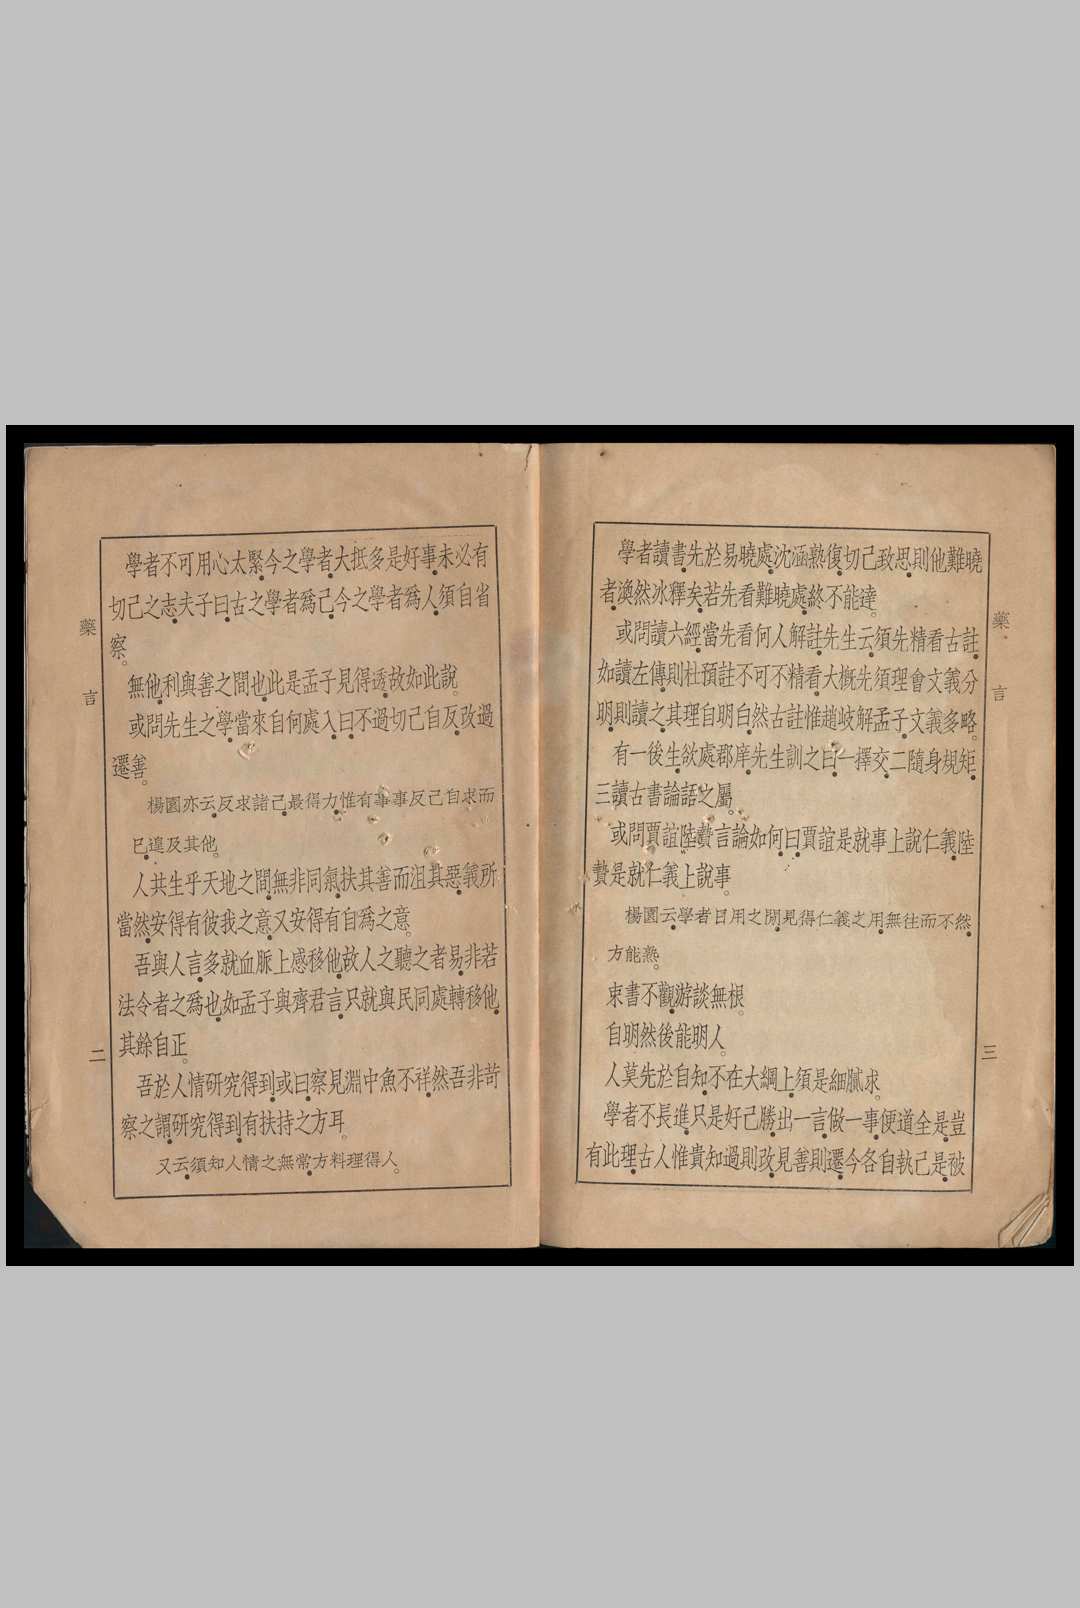 藥言
二
學者不可用心太緊．今之學者．大抵多是好事．未必有
切己之志．夫子曰．古之學者爲己．今之學者爲人．須自省
察。
無他．利與善之間也．此是孟子見得透．故如此說。
或問先生之學．當來自何處入．曰．不過切己自反．改過
遷善。
楊園亦云．反求諸己．最得力．惟有事事反己自求．而
已．遑及其他。
人共生乎天地之間．無非同氣．扶其善而沮其惡．義所
當然．安得有彼我之意．又安得有自爲之意。
吾與人言．多就血脈上感移他．故人之聽之者易．非若
法令者之爲也．如孟子與齊君言．只就與民同處轉移他．
其餘自正。
吾於人情研究得到．或曰．察見淵中魚不祥．然吾非苛
察之謂．研究得到．有扶持之方耳。
又云．須知人情之無常．方料理得人。
藥言
三
學者讀書．先於易曉處．沈涵熟復．切己致思．則他難曉
者．渙然冰釋矣．若先看難曉處．終不能達。
或問讀六經．當先看何人解註．先生云．須先精看古註．
如讀左傳．則杜預註不可不精看．大概先須理會文義分
明．則讀之．其理自明白．然古註惟趙岐解孟子．文義多略。
有一後生．欲處郡庠．先生訓之曰．一擇交．二隨身規矩．
三讀古書論語之屬。
或問賈誼陸贄言論如何．曰．賈誼是就事上說仁義．陸
贄是就仁義上說事。
楊園云．學者日用之間．見得仁義之用．無往而不然．
方能熟。
束書不觀．游談無根。
自明然後能明人。
人莫先於自知．不在大綱上．須是細膩求。
學者不長進．只是好己勝．出一言．做一事．便道全是．豈
有此理．古人惟貴知過則改．見善則遷．今各自執己是．被